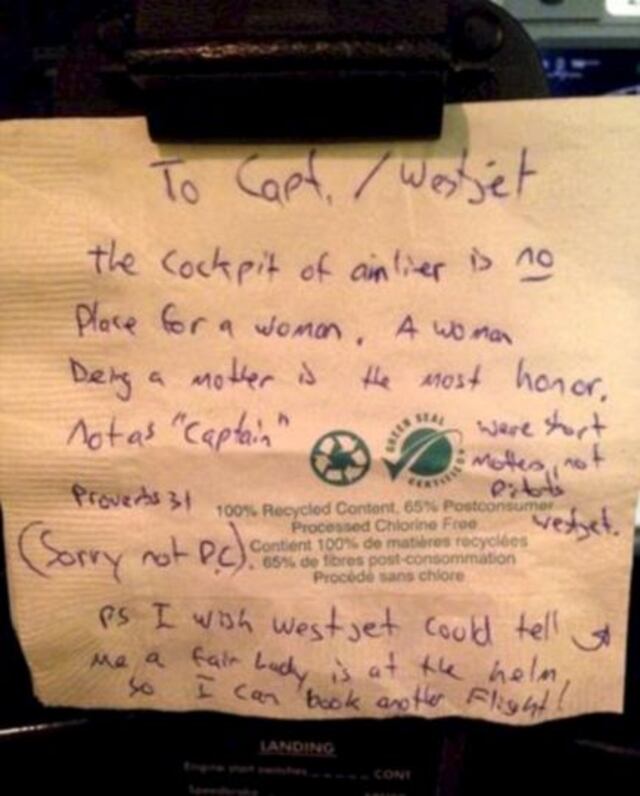 To Capt. / WestJet
the cockpit of airliner is no
Place for a woman. A woman
being a mother is the most honor.
Not as "Captain"
were short
mothers, not
pilots
westjet.
Proverbs 31
(Sorry not P.C.)
GREEN SEAL
CERTIFIED
100% Recycled Content, 65% Postconsumer
Processed Chlorine Free
Contient 100% de matières recyclées
65% de fibres post-consommation
Procédé sans chlore
PS I wish WestJet could tell
me a fair lady is at the helm
so I can book another Flight!
LANDING
Engine start switches _ _ _ _ _ CONT
Speedbrake